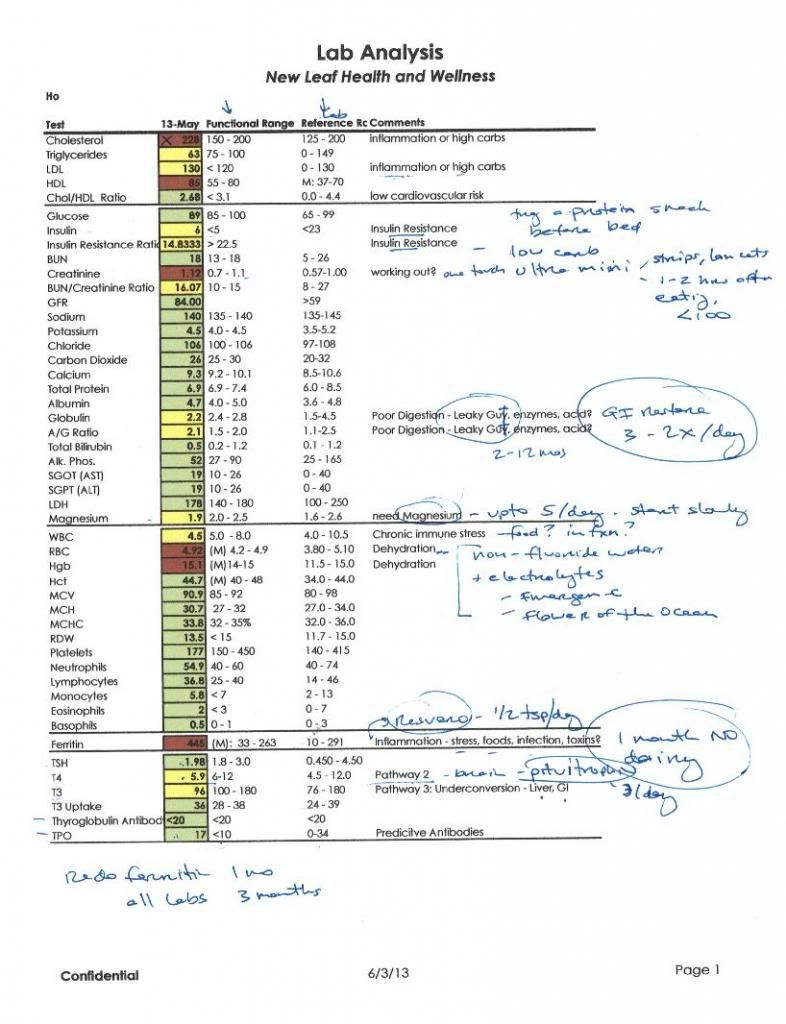 Lab Analysis
New Leaf Health and Wellness
Ho
Lab
Test 13-May Functional Range Reference Rc Comments
Cholesterol X 228 150 - 200 125 - 200 inflammation or high carbs
Triglycerides 63 75 - 100 0 - 149
LDL 130 < 120 0 - 130 inflammation or high carbs
HDL 85 55 - 80 M: 37-70
Chol/HDL Ratio 2.68 < 3.1 0.0 - 4.4 low cardiovascular risk
Glucose 89 85 - 100 65 - 99 try a protein snack
Insulin 6 <5 <23 Insulin Resistance before bed
Insulin Resistance Ratio 14.8333 > 22.5 Insulin Resistance - low carb
BUN 18 13 - 18 5 - 26
Creatinine 1.12 0.7 - 1.1 0.57-1.00 working out? one touch ultra mini / strips, lancets
BUN/Creatinine Ratio 16.07 10 - 15 8 - 27 - 1-2 hrs after
GFR 84.00 >59 eating,
Sodium 140 135 - 140 135-145 <100
Potassium 4.5 4.0 - 4.5 3.5-5.2
Chloride 106 100 - 106 97-108
Carbon Dioxide 26 25 - 30 20-32
Calcium 9.3 9.2 - 10.1 8.5-10.6
Total Protein 6.9 6.9 - 7.4 6.0 - 8.5
Albumin 4.7 4.0 - 5.0 3.6 - 4.8
Globulin 2.2 2.4 - 2.8 1.5-4.5 Poor Digestion - Leaky Gut, enzymes, acid? GI Restore
A/G Ratio 2.1 1.5 - 2.0 1.1-2.5 Poor Digestion - Leaky Gut, enzymes, acid? 3 - 2x/day
Total Bilirubin 0.5 0.2 - 1.2 0.1 - 1.2
2-12 mos
Alk. Phos. 52 27 - 90 25 - 165
SGOT (AST) 19 10 - 26 0 - 40
SGPT (ALT) 19 10 - 26 0 - 40
LDH 178 140 - 180 100 - 250
Magnesium 1.9 2.0 - 2.5 1.6 - 2.6 need Magnesium - upto 5/day. start slowly
WBC 4.5 5.0 - 8.0 4.0 - 10.5 Chronic immune stress - food? infxn?
RBC 4.92 (M) 4.2 - 4.9 3.80 - 5.10 Dehydration - non-fluoride water
Hgb 15.1 (M)14-15 11.5 - 15.0 Dehydration
Hct 44.7 (M) 40 - 48 34.0 - 44.0 + electrolytes
MCV 90.9 85 - 92 80 - 98 - Emergen-C
MCH 30.7 27 - 32 27.0 - 34.0 - Flower of the Ocean
MCHC 33.8 32 - 35% 32.0 - 36.0
RDW 13.5 < 15 11.7 - 15.0
Platelets 177 150 - 450 140 - 415
Neutrophils 54.9 40 - 60 40 - 74
Lymphocytes 36.8 25 - 40 14 - 46
Monocytes 5.8 < 7 2 - 13
Eosinophils 2 < 3 0 - 7
Basophils 0.5 0 - 1 0 - 3 - 1/2 tsp/day
Ferritin 445 (M): 33 - 263 10 - 291 Inflammation - stress, foods, infection, toxins? 1 month NO
dairy
TSH 1.98 1.8 - 3.0 0.450 - 4.50
T4 5.9 6-12 4.5 - 12.0 Pathway 2 - brain -
T3 96 100 - 180 76 - 180 Pathway 3: Underconversion - Liver, GI 3/day
T3 Uptake 36 28 - 38 24 - 39
Thyroglobulin Antibod <20 <20 <20
TPO 17 <10 0-34 Predicitve Antibodies
Redo ferritin 1 mo
all labs 3 months
Confidential 6/3/13 Page 1